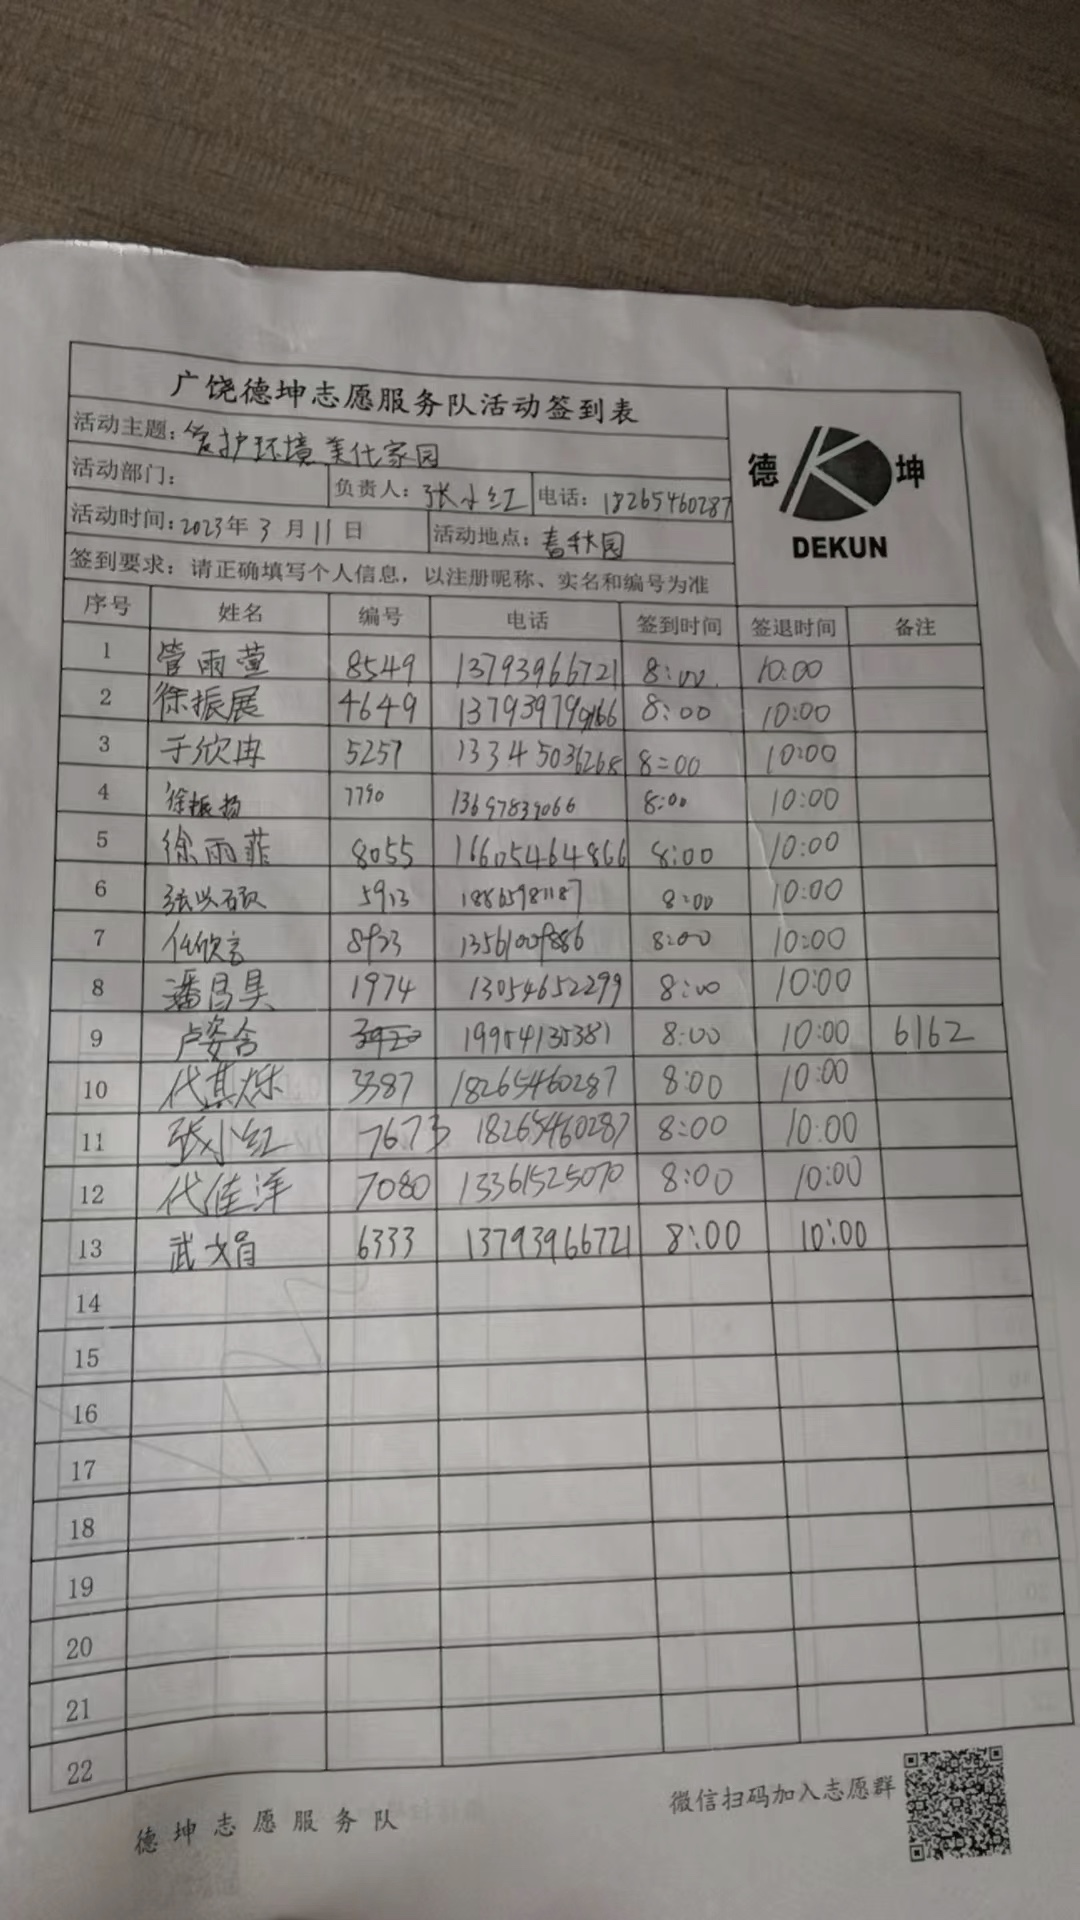 广饶德坤志愿服务队活动签到表
活动主题：爱护环境 美化家园
德 坤
DEKUN
活动部门： 负责人：张小红 电话：18265460287
活动时间：2023年3月11日 活动地点：春秋园
签到要求：请正确填写个人信息，以注册昵称、实名和编号为准
序号 姓名 编号 电话 签到时间 签退时间 备注
1 管雨萱 8549 13793966721 8:00 10:00
2 徐振展 4649 8:00 10:00
3 于欣冉 5257 13345036268 8:00 10:00
4 徐振扬 7790 13697839066 8:00 10:00
5 徐雨菲 8055 16605464866 8:00 10:00
6 5913 18865981187 8:00 10:00
7 任欣言 8923 13561009886 8:00 10:00
8 潘昌昊 1974 13054652299 8:00 10:00
9 卢姿含 19954135381 8:00 10:00 6162
10 代其烁 3387 18265460287 8:00 10:00
11 张小红 7673 18265460287 8:00 10:00
12 代佳洋 7080 13361525070 8:00 10:00
13 武文娟 6333 13793966721 8:00 10:00
14
15
16
17
18
19
20
21
22
德坤志愿服务队
微信扫码加入志愿群